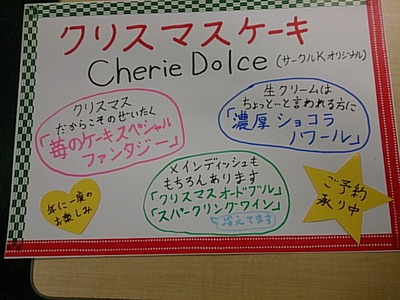 クリスマスケーキ
Cherie Dolce (サークルKオリジナル)
クリスマス
だからこそのぜいたく
「苺のケーキスペシャル
ファンタジー」
生クリームは
ちょっと…と言われる方に
「濃厚ショコラ
ノワール」
メインディッシュも
もちろんあります
「クリスマスオードブル」
「スパークリングワイン」
冷えてます
年に一度の
お楽しみ
ご予約
承り中